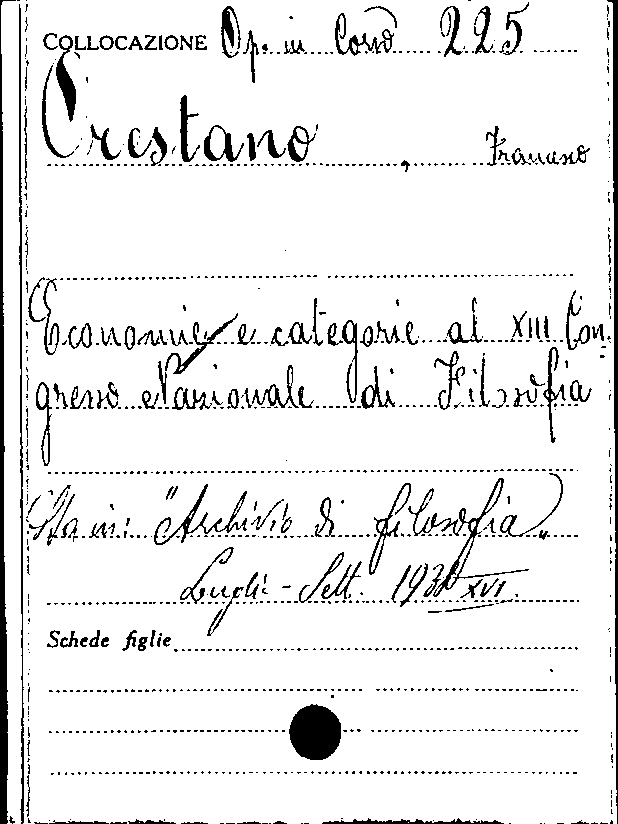 COLLOCAZIONE Op. in Corso 225
Orestano, Francesco
Economie e categorie al XIII Con-
gresso Nazionale di Filosofia
Sta in: "Archivio di filosofia"
Luglio - Sett. 1938 XVI.
Schede figlie